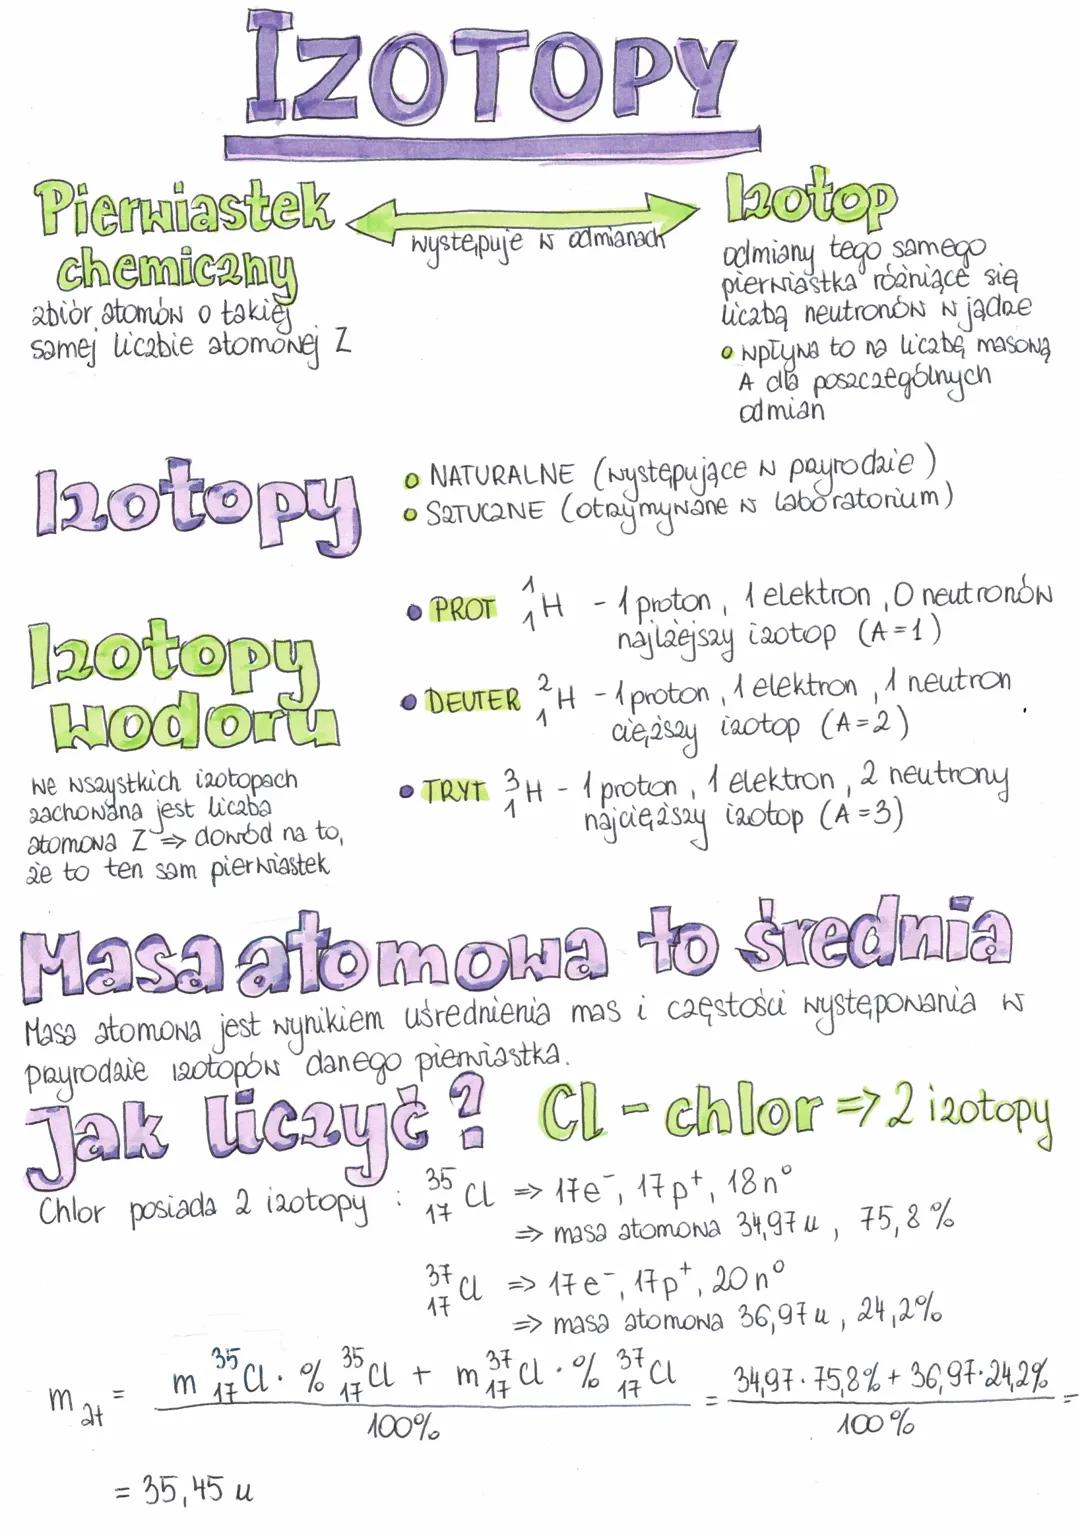 IZOTOPY
Pierwiastek
chemiczny
zbiór atomów o takiej
samej liczbie atomowej Z
występuje w odmianach
Izotop
odmiany tego samego
pierwiastka różniące się
liczbą neutronów w jądze
• wpływa to na liczbę masową
A dla poszczególnych
odmian
Izotopy
• NATURALNE (występujące w przyrodzie)
• SZTUCZNE (otrzymywane w laboratorium)
Izotopy
wodoru
we wszystkich izotopach
zachowana jest liczba
atomowa Z => dowód na to,
że to ten sam pierwiastek
• PROT ¹₁H - 1 proton, 1 elektron, 0 neutronów
najlżejszy izotop (A=1)
• DEUTER ²₁H - 1 proton, 1 elektron, 1 neutron
cięższy izotop (A=2)
• TRYT ³₁H - 1 proton, 1 elektron, 2 neutrony
najcięższy izotop (A=3)
Masa atomowa to średnia
Masa atomowa jest wynikiem uśrednienia mas i częstości występowania w
przyrodzie izotopów danego pierwiastka.
Jak liczyć? Cl - chlor => 2 izotopy
Chlor posiada 2 izotopy : ³⁵₁₇Cl => 17e⁻, 17p⁺, 18n⁰
=> masa atomowa 34,97 u, 75,8%
³⁷₁₇Cl => 17e⁻, 17p⁺, 20n⁰
=> masa atomowa 36,97 u, 24,2%
m at = m ³⁵₁₇Cl · % ³⁵₁₇Cl + m ³⁷₁₇Cl · % ³⁷₁₇Cl / 100% = 34,97 · 75,8% + 36,97 · 24,2% / 100% =
= 35,45 u